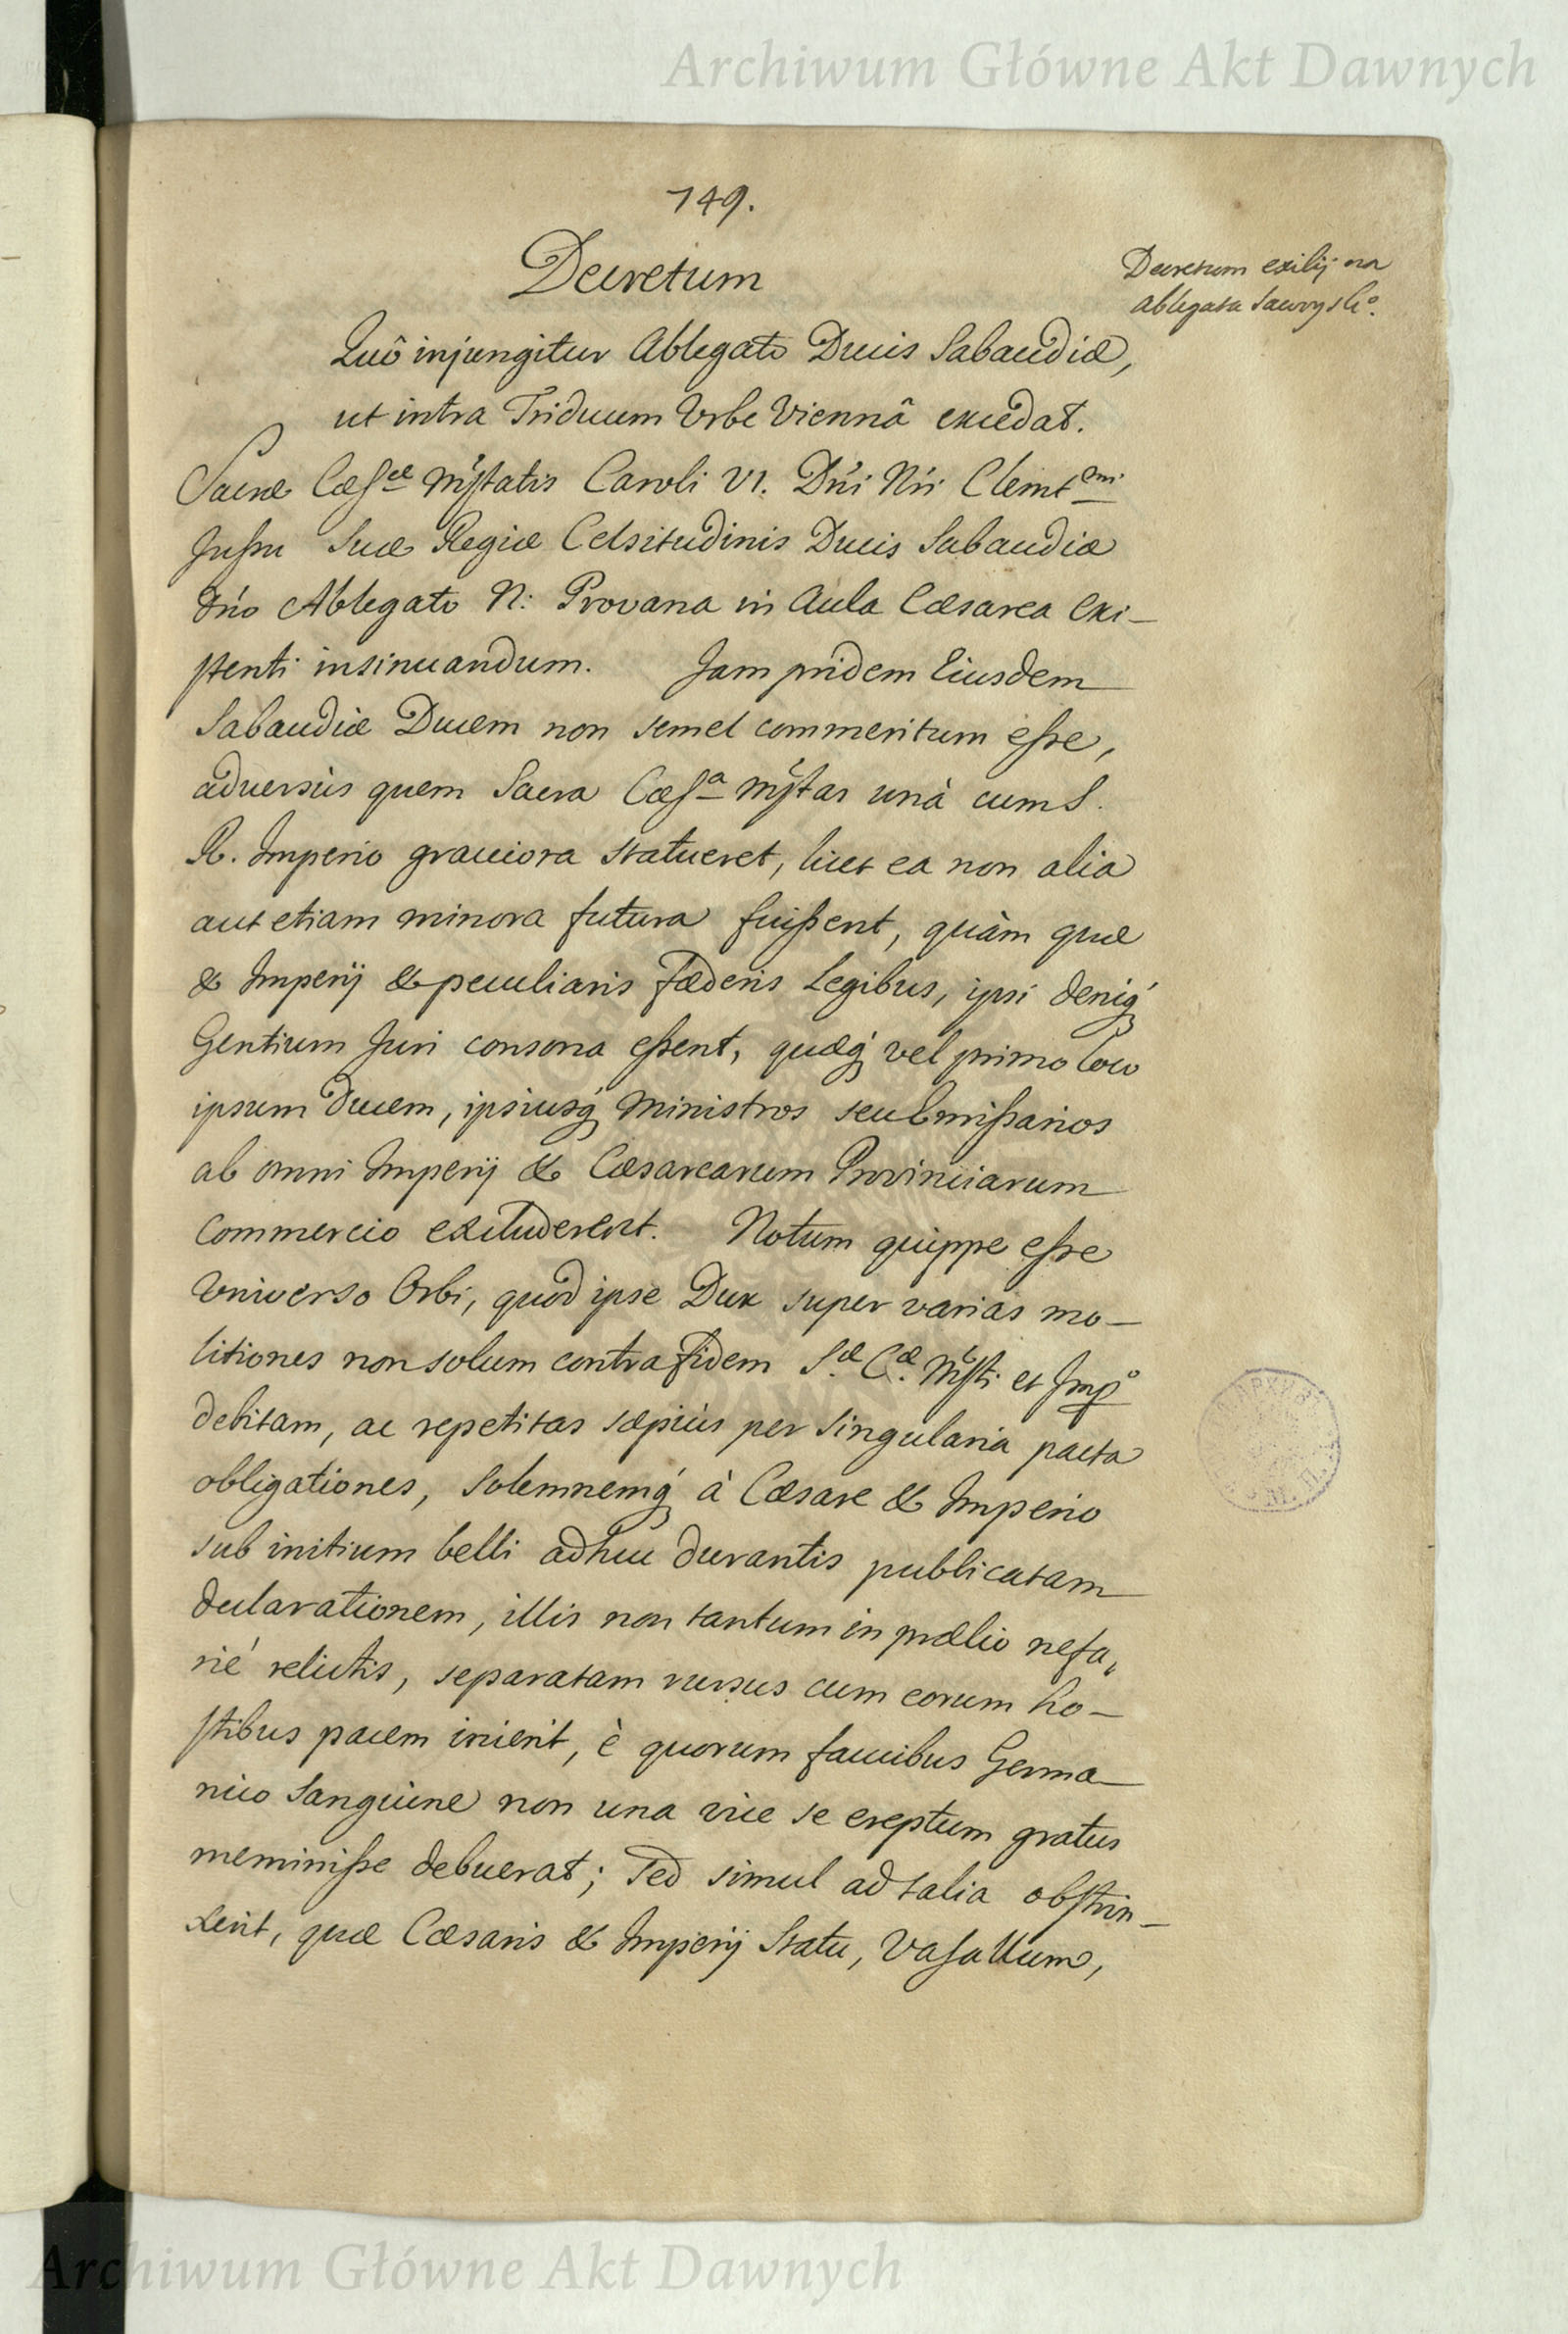 Archiwum Główne Akt Dawnych
149.
Decretum
Decretum exilij na
ablegata Sawoysko.
Quô injungitur Ablegato Ducis Sabaudiæ,
ut intra Triduum Urbe Viennâ excedat.
Sacræ Cæsæ Mtjstatis Caroli VI. Dńi Nri Clemtmi
Jussu Suæ Regiæ Celsitudinis Ducis Sabaudiæ
Dńo Ablegato N: Provana in Aula Cæsarea exi-
stenti insinuandum. Jam pridem Eiusdem
Sabaudiæ Ducem non semel commeritum esse,
adversùs quem Sacra Cæsa Mtjstas unà cum S.
R. Imperio graviora statueret, licet ea non alia
aut etiam minora futura fuissent, quàm quæ
& Imperij & peculiaris fæderis Legibus, ipsi deniq́
Gentium Juri consona essent, quæq́ vel primo loco
ipsum Ducem, ipsiusq́ Ministros seu Emissarios
ab omni Imperij & Cæsarearum Provinciarum
commercio excluderent. Notum quippe esse
Universo Orbi, quod ipse Dux super varias mo-
litiones non solum contra fidem S.æ C.æ Mtsti et Impo
debitam, ac repetitas sæpiùs per singularia pacta
obligationes, Solemnemq́ à Cæsare & Imperio
sub initium belli adhuc durantis publicatam
declarationem, illis non tantum in prælio nefa„
rié relictis, separatam rursus cum eorum ho-
stibus pacem inierit, è quorum faucibus Germa-
nico Sanguine non una vice se ereptum gratus
meminisse debuerat; Sed simul ad talia obstrin-
xerit, quæ Cæsaris & Imperij Statu, Vasallum,
Archiwum Główne Akt Dawnych